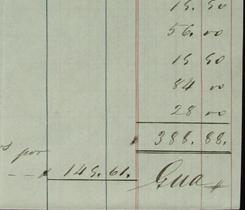 15. 50
56. 00
15 50
84 00
28 00
388. 88.
por
145. 61.